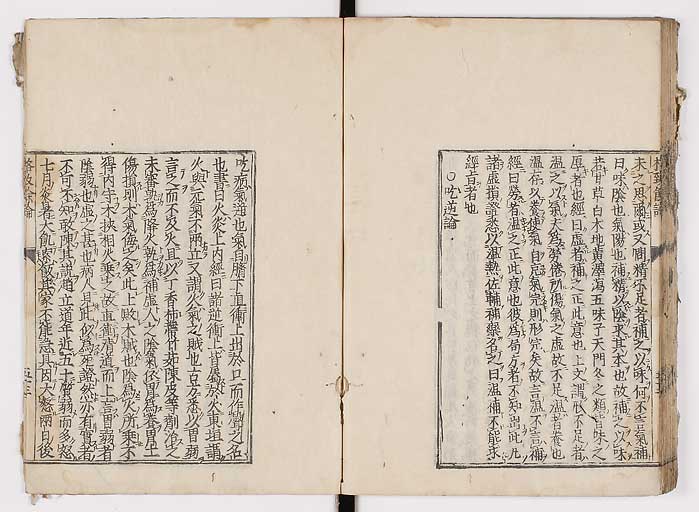 未之思爾或又問精不足者補之以味何不言氣補
曰味陰也氣陽也補精以陰求其本也故補之以味
若甘草白木地黄澤瀉五味子天門冬之類皆味之
厚者也經曰虚者補之正此意也上文謂形不足者
温之以氣夫爲勞倦所傷氣之虚故不足温者養也
温存以養使氣自充氣完則形完矣故言温不言補
經曰勞者温之正此意也彼爲局方者不知出此凡
諸虚損證悉以温熱佐輔補藥名之曰温補不能求
經旨者也
○呃逆論
呃病氣逆也氣自臍下直衝上出於口而作聲之名
也書曰火炎上内經曰諸逆衝上皆屬於火東垣謂
火與元氣不兩立又謂火氣之賊也古方悉以胃弱
言之而不及火且以丁香柿蔕竹茹陳皮等劑治之
未審孰爲降火孰爲補虚人之陰氣依胃爲養胃土
傷損則木氣侮之矣此土敗木賊也陰爲火所乘不
得内守木挾相火乘之故直衝清道而上言胃弱者
陰弱也虚之甚也病人見此似爲死證然亦有實者
不可不知敢陳其説趙立道年近五十質弱而多怒
七月炎暑大飢索飯其家不能急具因大怒兩日後
格致餘論